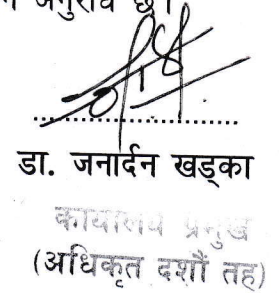 अनुरोध छ।
डा. जनार्दन खड्का
कार्यालय प्रमुख
(अधिकृत दशौं तह)